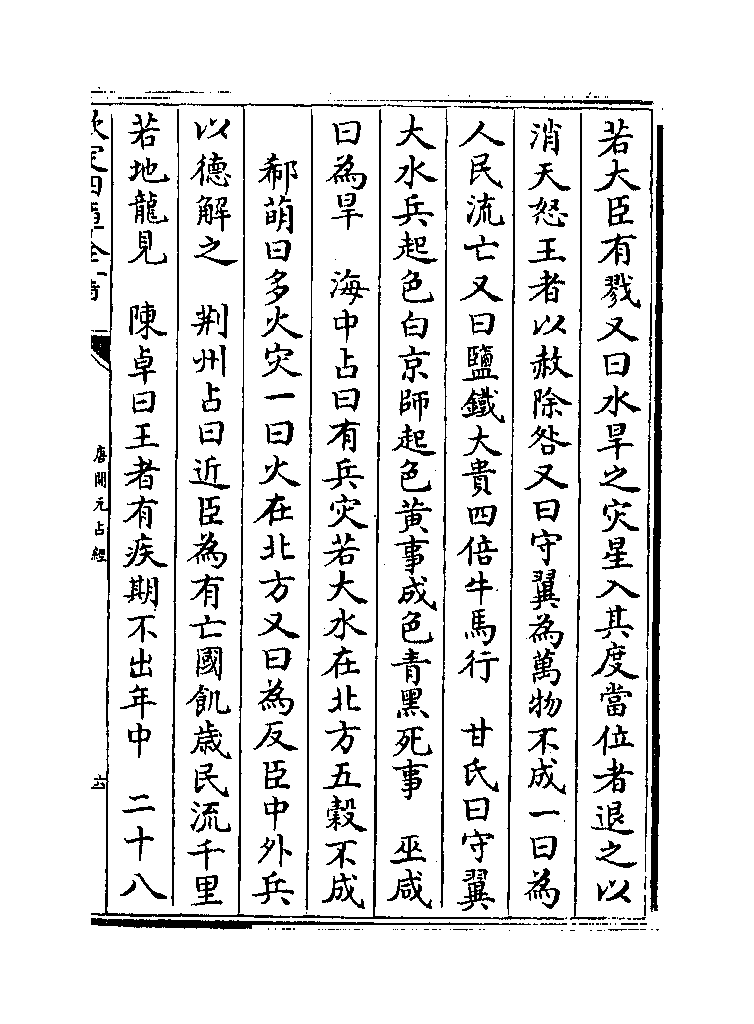 若大臣有戮又曰水旱之灾星入其度當位者退之以
消天怒王者以赦除咎又曰守翼為萬物不成一曰為
人民流亡又曰鹽鐵大貴四倍牛馬行　甘氏曰守翼
大水兵起色白京師起色黄事成色青黑死事　巫咸
曰為旱　海中占曰有兵灾若大水在北方五穀不成
郗萌曰多火灾一曰火在北方又曰為反臣中外兵
以德解之　荆州占曰近臣為有亡國飢歳民流千里
若地龍見　陳卓曰王者有疾期不出年中　二十八
欽定四庫全書
唐開元占經
六